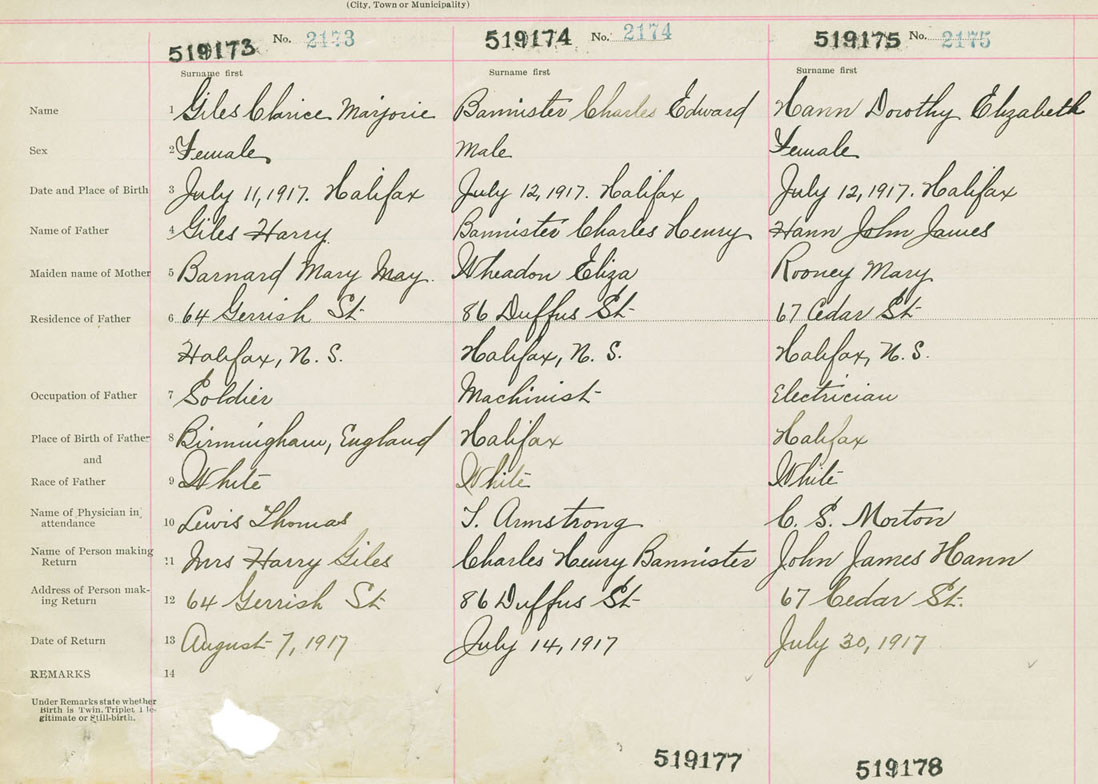 (City, Town or Municipality)
519173 No. 2173 519174 No. 2174 519175 No. 2175
Surname first Surname first Surname first
Name 1 Giles Clarice Marjorie Bannister Charles Edward Hann Dorothy Elizabeth
Sex 2 Female Male Female
Date and Place of Birth 3 July 11, 1917. Halifax July 12, 1917. Halifax July 12, 1917. Halifax
Name of Father 4 Giles Harry Bannister Charles Henry Hann John James
Maiden name of Mother 5 Barnard Mary May. Wheadon Eliza Rooney Mary
Residence of Father 6 64 Gerrish St 86 Duffus St 67 Cedar St
Halifax, N. S. Halifax, N. S. Halifax, N. S.
Occupation of Father 7 Soldier Machinist Electrician
Place of Birth of Father 8 Birmingham, England Halifax Halifax
and
Race of Father 9 White White White
Name of Physician in attendance 10 Lewis Thomas T. Armstrong C. S. Morton
Name of Person making Return 11 Mrs Harry Giles Charles Henry Bannister John James Hann
Address of Person mak-ing Return 12 64 Gerrish St 86 Duffus St 67 Cedar St.
Date of Return 13 August 7, 1917 July 14, 1917 July 30, 1917
REMARKS 14
Under Remarks state whether
Birth is Twin, Triplet Ille-
gitimate or Still-birth.
519177 519178